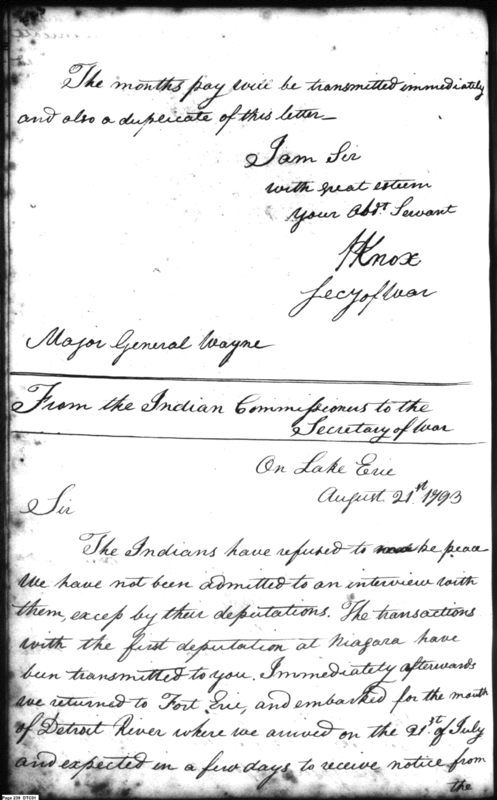 The months pay will be transmitted immediately
and also a duplicate of this letter—
I am Sir
with great esteem
your Obdt. Servant
HKnox
Secy of War
Major General Wayne
From the Indian Commissioners to the
Secretary of War
On Lake Erie
August 21st 1793
Sir
The Indians have refused to make peace
we have not been admitted to an interview with
them, excep by their deputations. The transactions
with the first deputation at Niagara have
been transmitted to you. Immediately afterwards
we returned to Fort Erie, and embarked for the mouth
of Detroit River where we arrived on the 21st of July
and expected in a few days to receive notice from
the
Page 239 DTC01